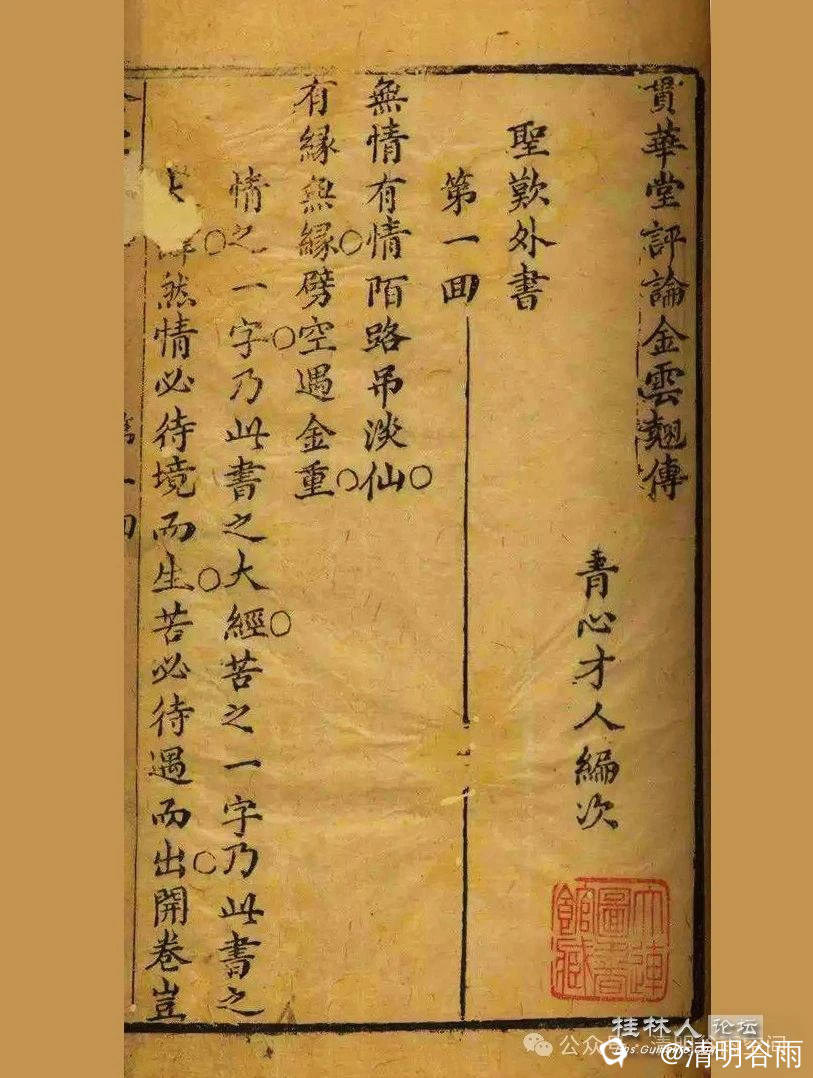 貫華堂評論金雲翹傳
青心才人編次
聖歎外書
第一回
無情有情陌路吊淡仙○
有緣無緣○劈空遇金重○
情之一字○乃此書之大經○苦之一字乃此書之
○然情必待境而生○苦必待遇而出○開卷豈
第一回
大連圖書館藏
桂林人论坛
公众号
清明谷雨
@清明谷雨